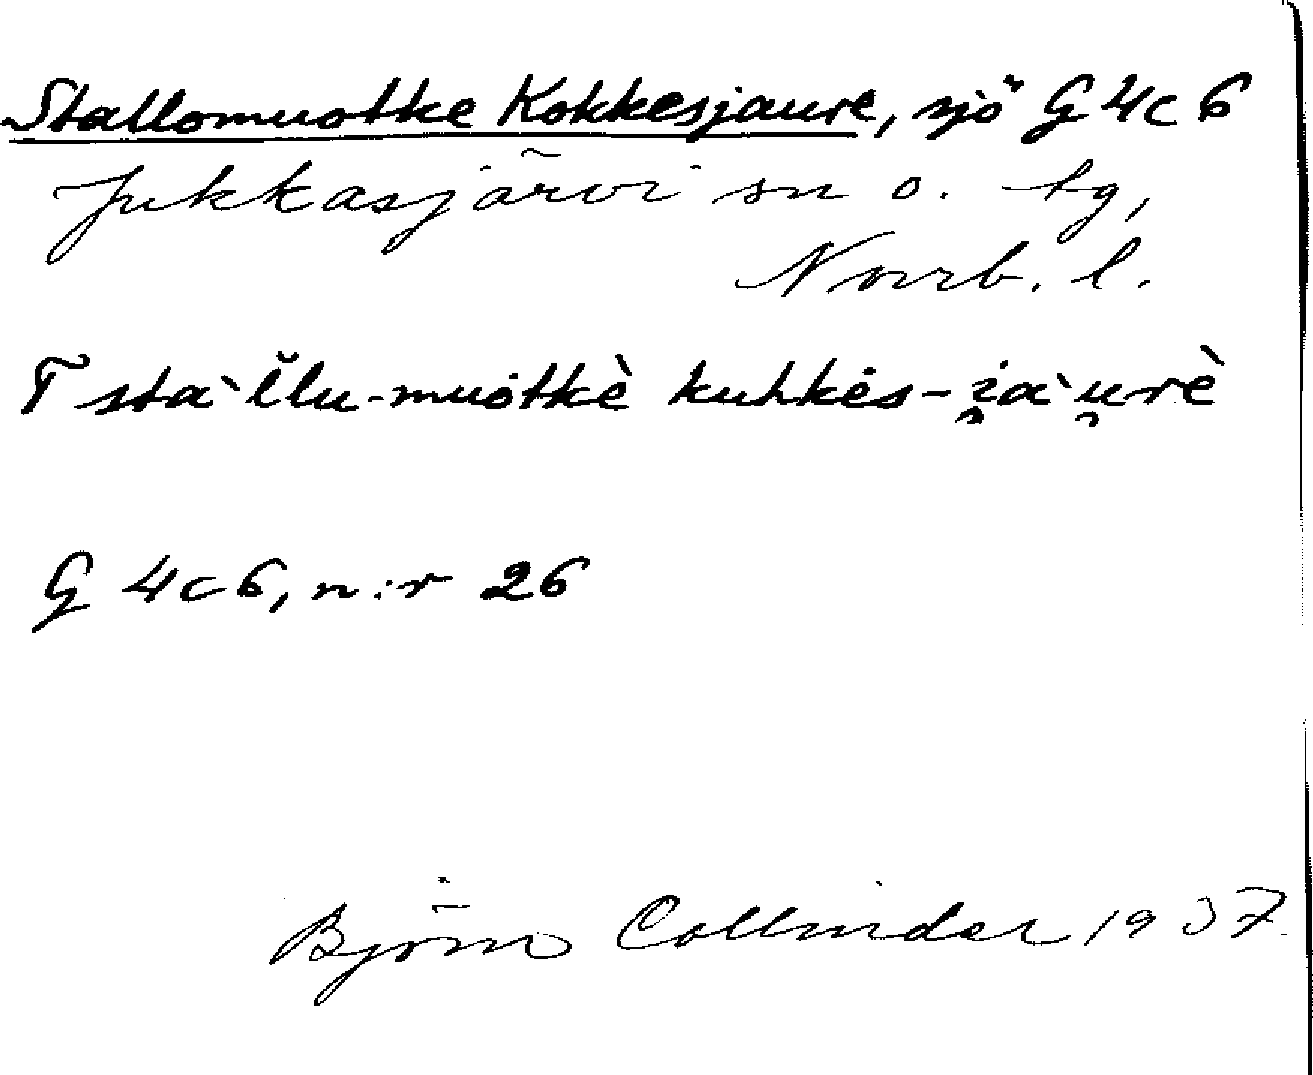 Stallomuotke Kokkesjaure, sjö G 4c 6
Jukkasjärvi sn o. tg,
Norrb. l.
T stàl̆lu-muȯtkè kuhkės-i̯àu̯rè
G 4c6, n:r 26
Björn Collinder 1937